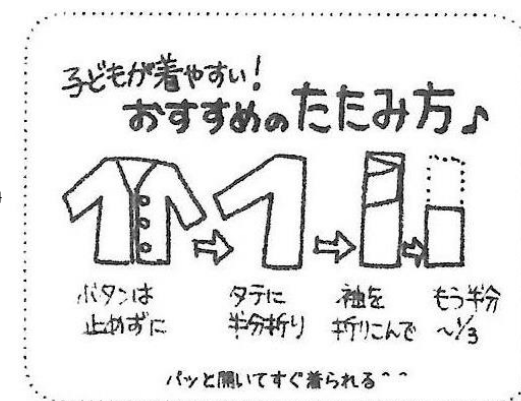 子どもが着やすい!
おすすめのたたみ方♪
ボタンは
止めずに
タテに
半分折り
袖を
折りこんで
もう半分
~1/3
パッと開いてすぐ着られる^^